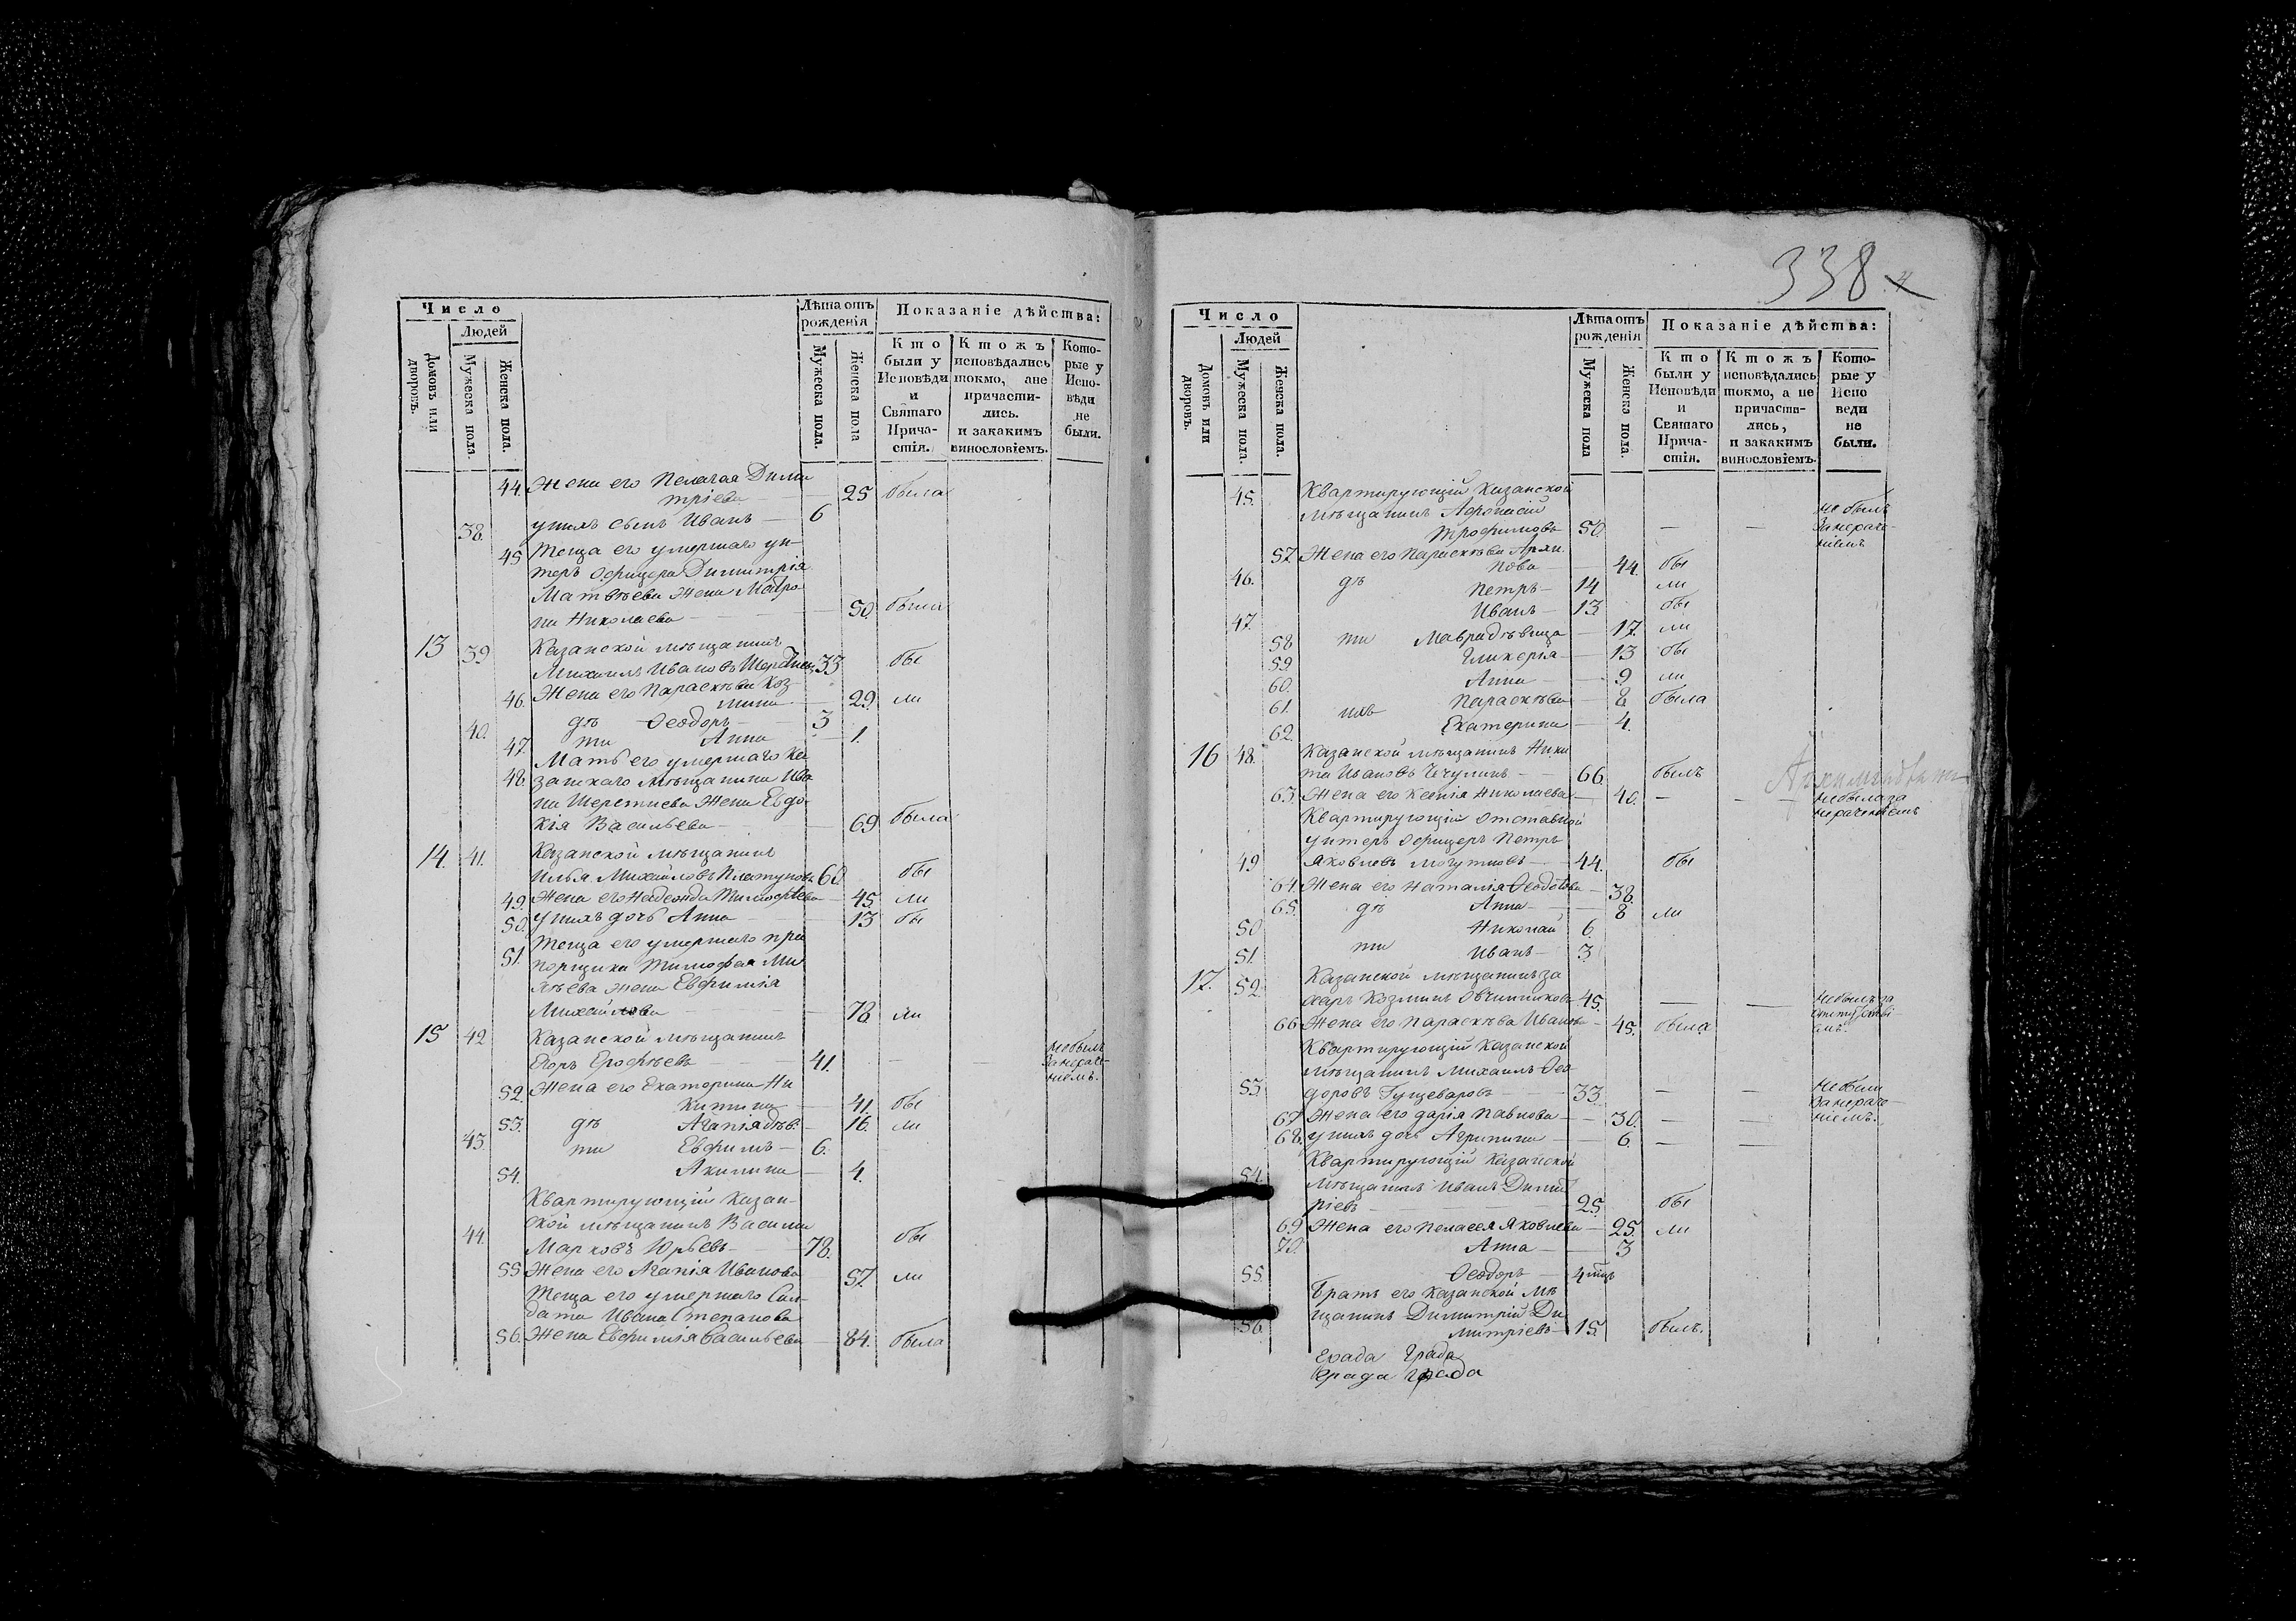 Число
Людей
Домовъ или дворовъ.
Мужеска пола.
Женска пола.
Лѣта отъ рожденія
Мужеска пола.
Женска пола
Показаніе дѣйства:
Кто были у Исповѣди и Святаго Причастія.
Ктожъ исповѣдались токмо, ане причастились. и закакимъ винословіемъ.
Которые у Исповѣди не были.
44. Жена его Пелагая Дими
тріева — 25 была
38. у нихъ сынъ Иванъ — 6
45 Теща его умершаго ун-
теръ офицера Димитрія
Матвѣева жена Матро
на Николаева — 50. была
13 39 Казанской мѣщанинъ
Михаилъ Ивановъ 33 бы
46. Жена его Параскѣва Коз-
мина — 29. ли
40. дѣ Ѳеодоръ — 3
47. ти Анна — 1.
Мать его умершаго Ка
48. занскаго мѣщанина Ива
на Шерстнева жена Евдо-
кія Васильева — 69 была
14. 41. Казанской мѣщанинъ
Илья Михайловъ Платуновъ 60. бы
49. Жена его Надежда Тимофѣева — 45. ли
50. у нихъ дочь Анна — 13 бы
Теща его умершаго пра
51. порщика Тимофея Ми
хѣева жена Евфимія
Михайлова — 78 ли
15 42 Казанской мѣщанинъ
Егоръ Ерофѣевъ — 41. — не былъ
занераче-
ніемъ.
52. Жена его Екатерина Ни
китина — 41. бы
53. дѣ Агапія дѣв: — 16. ли
43. ти Евфимъ — 6.
54. Акилина — 4.
Квартирующій Казан-
ской мѣщанинъ Василій
44. Марковъ Юрьевъ — 78. бы
55 Жена его Агапія Иванова 57. ли
Теща его умершаго Сол-
дата Ивана Степанова
56. Жена Евфимія Васильева — 84. была
338
4
Число
Людей
Домовъ или дворовъ.
Мужеска пола.
Женска пола.
Лѣта отъ рожденія
Мужеска пола
Женска пола.
Показаніе дѣйства:
Кто были у Исповѣди и Святаго Причастія.
Ктожъ исповѣдались токмо, а не причастились, и закакимъ винословіемъ.
Которые у Исповеди не были.
45. Квартирующій Казанской
мѣщанинъ Афонасій
Трофимовъ 50. — — не былъ
занераче-
ніемъ
57. Жена его Параскѣва Архи
пова — 44. бы
46. дѣ Петръ — 14 ли
47. Иванъ — 13 бы
58 ти Мавра дѣвица — 17. ли
59 Гликерія — 13 бы
60. Анна — 9 ли
61. ихъ Параскѣва — 8 была
62. Екатерина — 4.
16 48. Казанской мѣщанинъ Ники
та Ивановъ Чечулинъ — 66. былъ
63. Жена его Ксенія Николаева — 40. — — не была за
нераченіемъ
Квартирующій отставной
унтеръ офицеръ Петръ
49 Яковлевъ — 44. бы
64. Жена его Наталія Ѳедотова — 38.
65. дѣ Анна — 8 ли
50 Николай 6.
51. ти Иванъ — 3
17. 52. Казанской мѣщанинъ За
харъ Козминъ Овчинниковъ 45. — — не былъ за
отсутстві
емъ.
66 Жена его Параскѣва Иванова — 45. была
Квартирующій Казанской
мѣщанинъ Михаилъ Ѳео
53. доровъ — 33. — — не были
занераче-
ніемъ.
67 Жена его Дарія Павлова — 30. — —
68. у нихъ дочь Агрипина — 6. — —
Квартирующій Казанской
54. мѣщанинъ Иванъ Димит
ріевъ — 25. бы
69 Жена его Пелагея Яковлева — 25. ли
70. Анна — 3
55. Ѳеодоръ — 4 мцъ
Братъ его Казанской мѣ
щанинъ Димитрій Ди
56. митріевъ — 15. былъ.
града
града